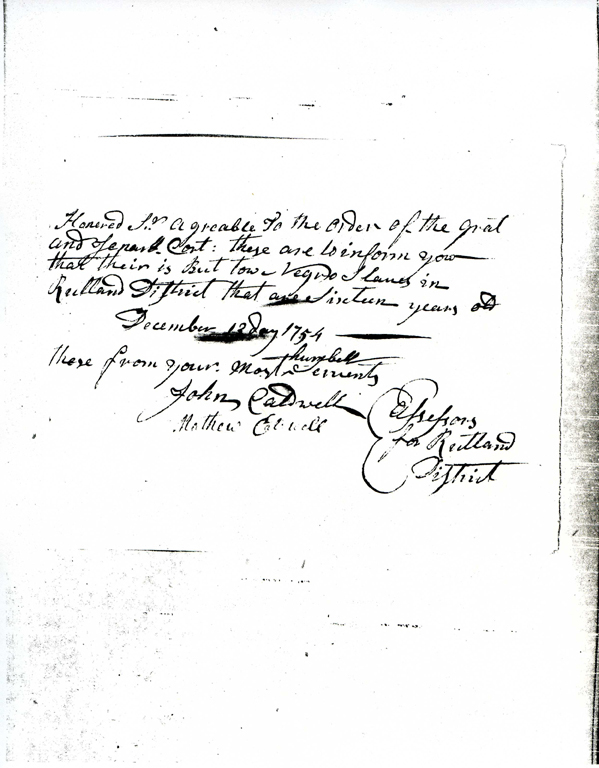 Honered Sr. Agreable To the order of the gral
and Court: these are to inform you
that their is But tow Negro Slaves in
Rutland District that are Sixteen years old
December 12 day 1754
these from your most humbell
Servents
John Caldwell
Mathew
Assessors
for Rutland
District